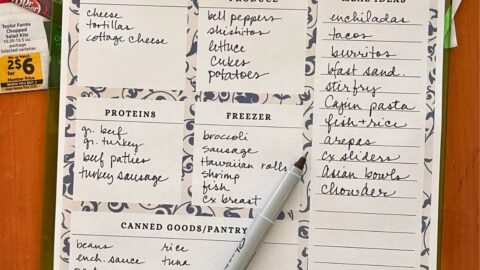 Taylor Farms
Chopped
Salad Kits
package
Selected varieties
2$6
Member Price
cheese
tortillas
cottage cheese
PRODUCE
bell peppers
shishitos
lettuce
cukes
potatoes
MEAL IDEAS
enchiladas
tacos
burritos
bfast sand.
stir fry
Cajun pasta
fish + rice
arepas
cx sliders
Asian bowls
chowder
PROTEINS
gr. beef
gr. turkey
beef patties
turkey sausage
FREEZER
broccoli
sausage
Hawaiian rolls
shrimp
fish
cx breast
CANNED GOODS/PANTRY
beans
ench. sauce
rice
tuna